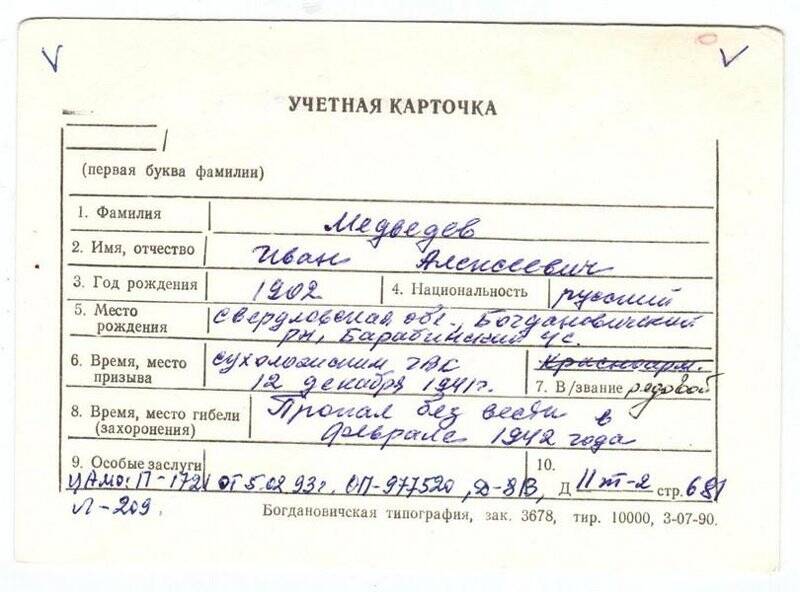 УЧЕТНАЯ КАРТОЧКА
(первая буква фамилии)
1. Фамилия Медведев
2. Имя, отчество Иван Алексеевич
3. Год рождения 1902 4. Национальность русский
5. Место рождения Свердловская обл., Богдановичский
рн, Барабинский с/с.
6. Время, место призыва Сухоложским РВК
12 декабря 1941г.
Красноарм.
7. В/звание рядовой
8. Время, место гибели (захоронения) Пропал без вести в
феврале 1942 года
9. Особые заслуги
10.
ЦАМО: П-172 от 5.02.93г. ОП-977520, Д-813, Д II т-2 стр. 681
Л-209.
Богдановичская типография, зак. 3678, тир. 10000, 3-07-90.